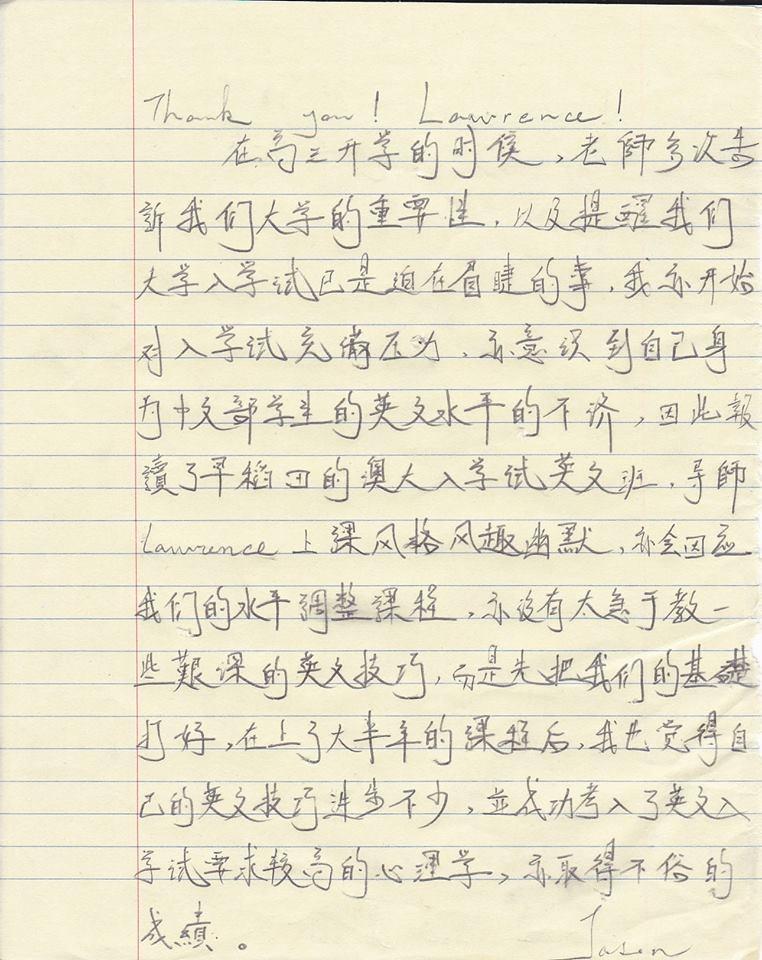 Thank you! Lawrence!
在高三开学的时侯，老師多次告
訴我们大学的重要性，以及提醒我们
大学入学试已是迫在眉睫的事，我亦开始
对入学试充满压力，亦意识到自己身
为中文部学生的英文水平的不济，因此報
讀了早稻田的澳大入学试英文班，导師
Lawrence上課风格风趣幽默，亦会因应
我们的水平調整課程，亦沒有太急于教一
些艱深的英文技巧，而是先把我们的基礎
打好，在上了大半年的課程后，我也觉得自
己的英文技巧进步不少，並成功考入了英文入
学试要求较高的心理学，亦取得不俗的
成績。
Jason